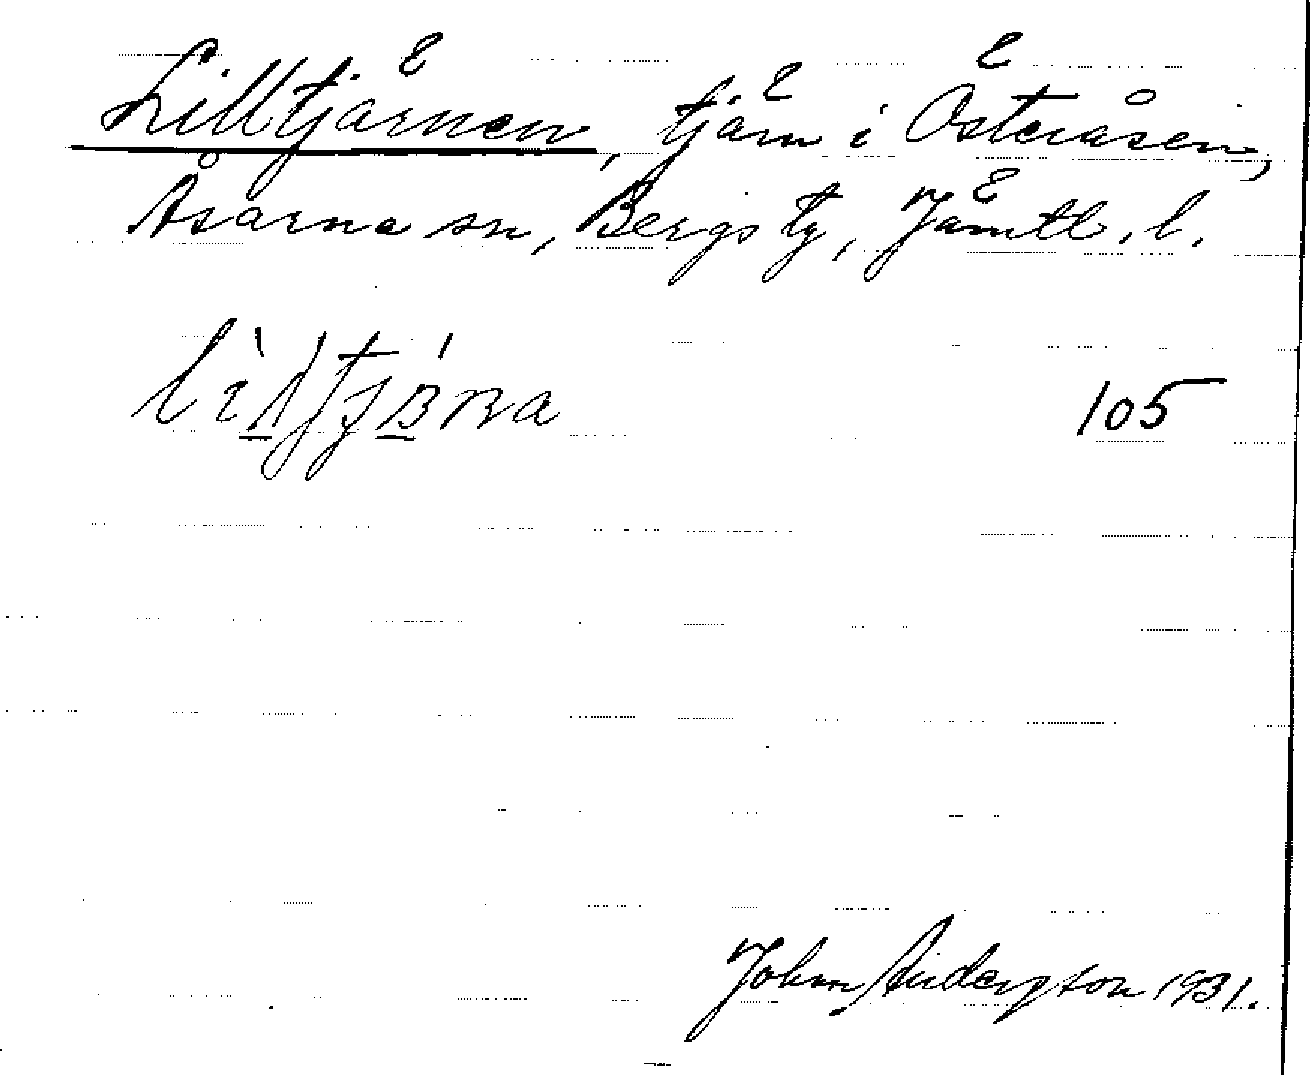 Lilltjärnen, tjärn i Österåsen,
Åsarna sn, Bergs tg, Jämtl. l.
105
John Andersson 1931.